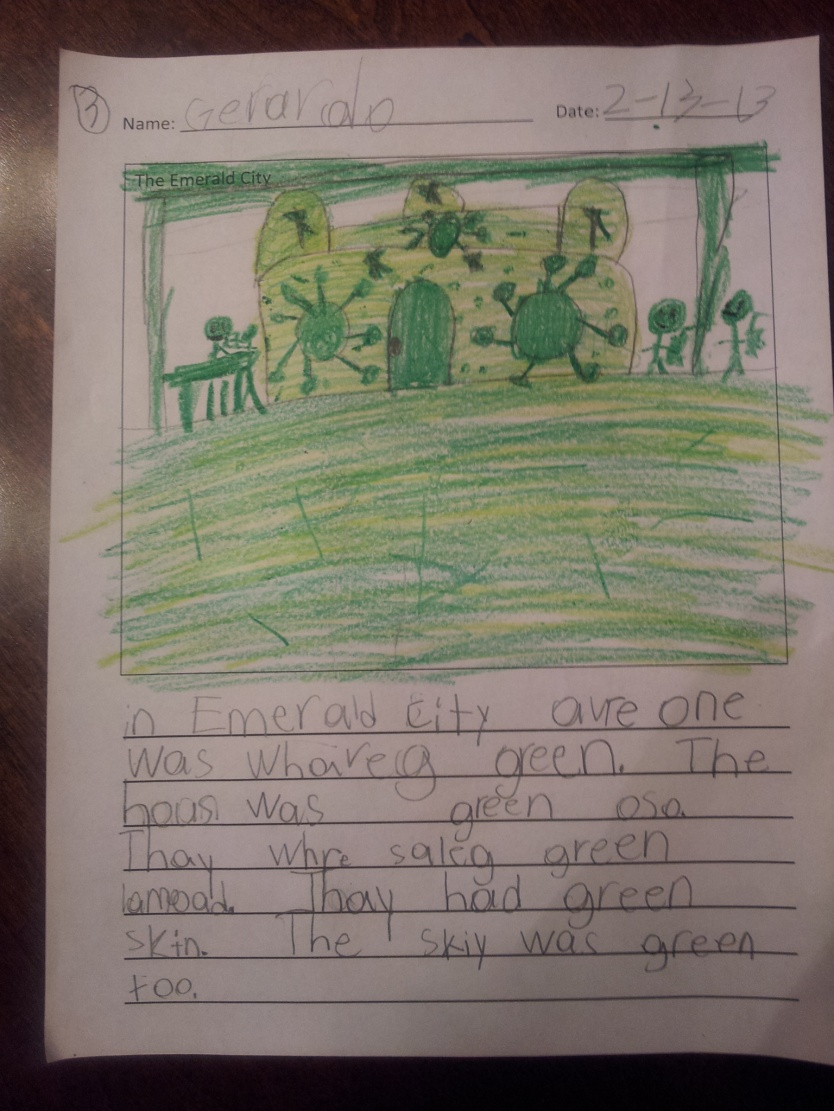 3
Name: Gerardo Date: 2-13-13
The Emerald City
in Emerald City avre one
was whaireg green. The
hous was green oso.
Thay whre saleg green
lamoad. Thay had green
skin. The skiy was green
too.